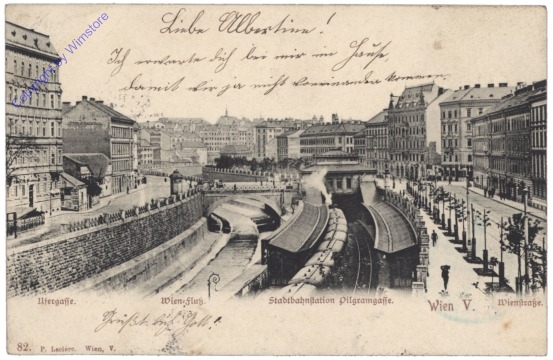 Copyright by Wimstore
Liebe Albertine!
Ich erwarte dich bei mir im Hause,
damit wir ja nicht voneinander kommen.
Ufergasse. Wien-Fluß. Stadtbahnstation Pilgramgasse. Wien V. Wienstraße.
82. P. Ledermann, Wien, V.